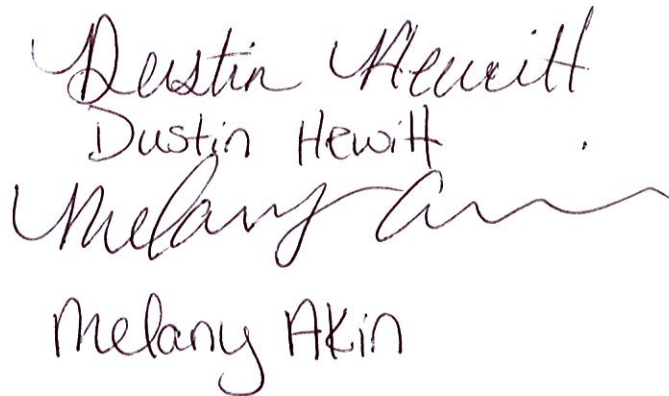 Dustin Hewitt
Dustin Hewitt
Melany A
Melany Akin